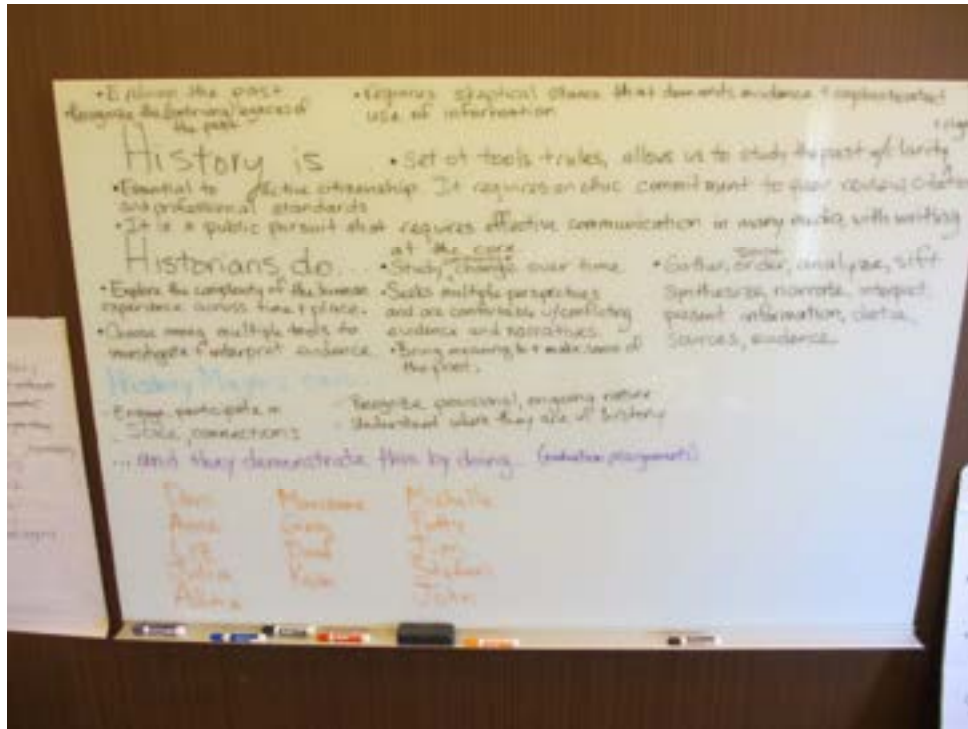 • Explores the past
Recognize the legacies of
the past
• requires skeptical stance that demands evidence + sophisticated
use of information
History is
• Set of tools + rules, allows us to study the past w/ clarity
• Essential to effective citizenship. It requires an ethic commitment to peer review,
and professional standards
• It is a public pursuit that requires effective communication in many media, with writing
at the core
Historians do...
• Explore the complexity of the human
experience across time + place.
• Choose among multiple tools to
investigate + interpret evidence.
• Study change over time
• Seeks multiple perspectives
and are comfortable w/conflicting
evidence and narratives.
• Bring meaning to + make sense of
the past.
• Gather, order, analyze, sift
synthesize, narrate, interpret,
present information,
sources, evidence.
History Majors can...
- Engage, participate in
- connections
- Recognize provisional, ongoing nature
- Understand where they are in history
...and they demonstrate this by doing.
Anne
Julia
Marianne
Greg
Michelle
Patty
Stephen
John